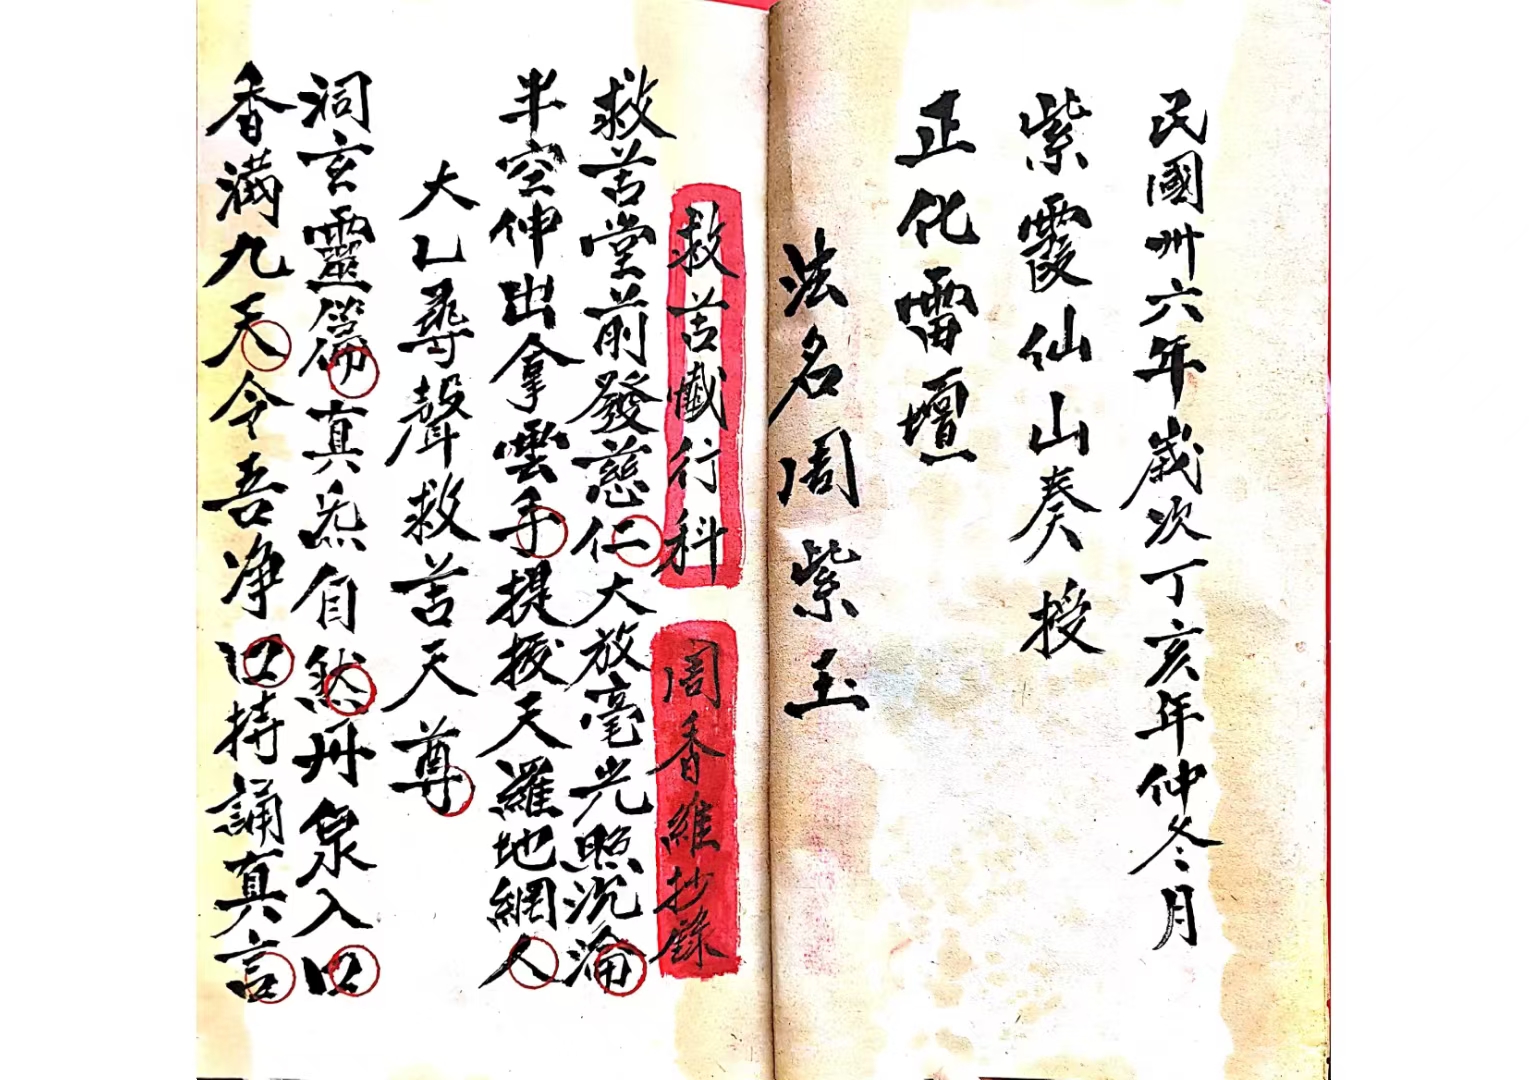 民國卅六年歲次丁亥年仲冬月
紫霞仙山奏授
正化雷壇
法名周紫玉
救苦懺行科 周香維抄錄
救苦堂前發慈仁大放毫光照沉淪
半空伸出拿雲手提拔天羅地網人
大乙尋聲救苦天尊
洞玄靈篇真炁自然卅泉入口
香滿九天令吾净口持誦真言